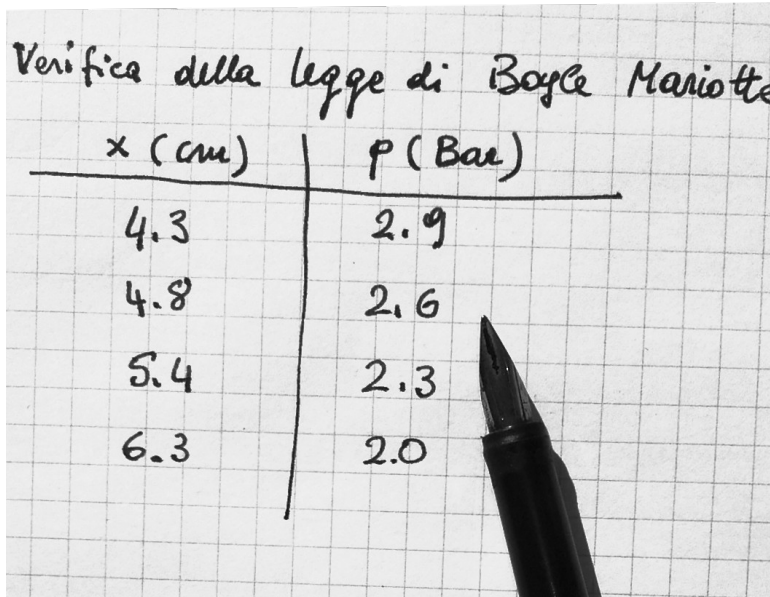 Verifica della legge di Boyle Mariotte
x (cm) p (Bar)
4.3 2.9
4.8 2.6
5.4 2.3
6.3 2.0